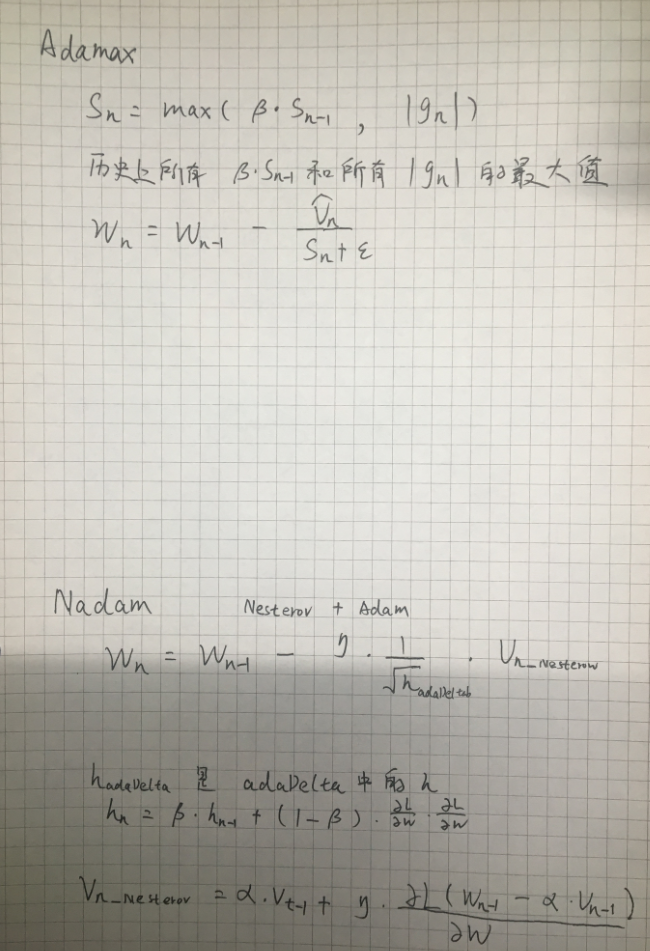 Adamax
Sn = max( β · Sn-1 , |gn| )
历史上所有 β·Sn-1 和所有 |gn| 的最大值
Wn = Wn-1 - V̂n / (Sn + ε)
Nadam Nesterov + Adam
Wn = Wn-1 - η · 1/√hadaDelta · Vn_Nesterov
hadaDelta 是 adaDelta 中的 h
hn = β · hn-1 + (1-β) · ∂L/∂w · ∂L/∂w
Vn_Nesterov = α · Vt-1 + η · ∂L(Wn-1 - α · Vn-1) / ∂W